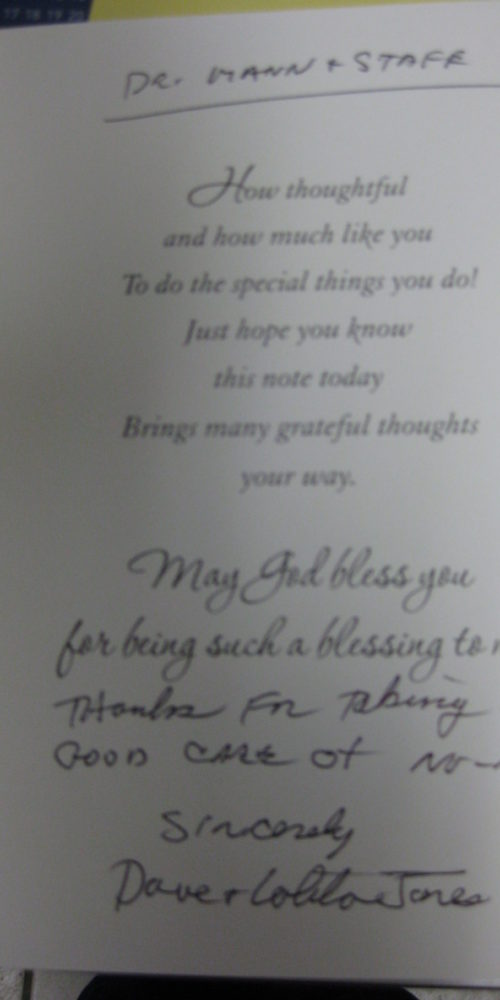 17 18 19 20
DR. MANN + STAFF
How thoughtful
and how much like you
To do the special things you do!
Just hope you know
this note today
Brings many grateful thoughts
your way.
May God bless you
for being such a blessing to
THANKS FOR TAKING
GOOD CARE OF
Sincerely
Dave + Lolita Jones